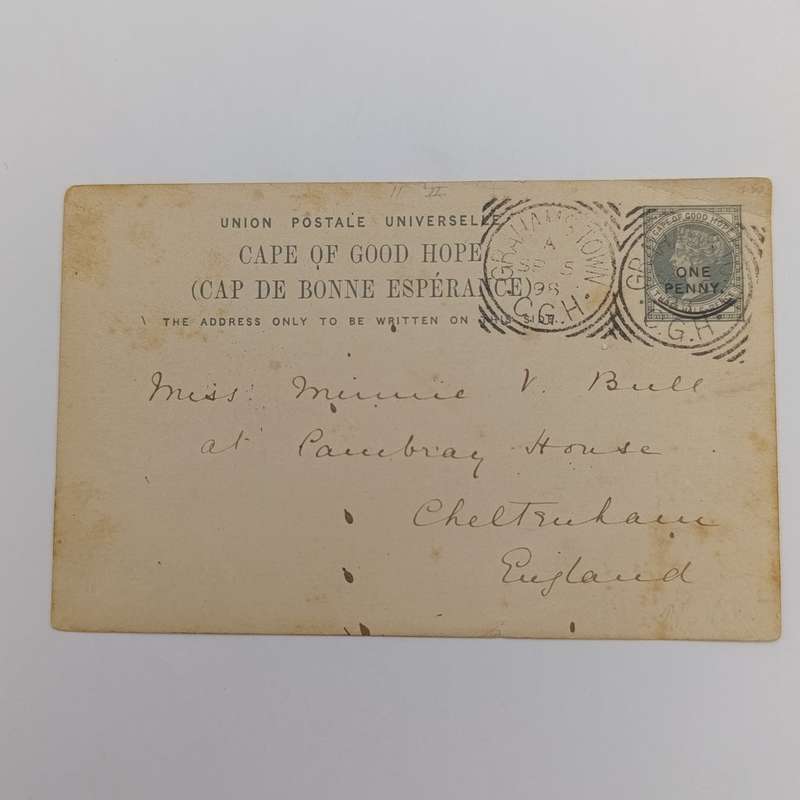 UNION POSTALE UNIVERSELLE
CAPE OF GOOD HOPE
(CAP DE BONNE ESPÉRANCE)
THE ADDRESS ONLY TO BE WRITTEN ON THIS SIDE.
GRAHAMSTOWN
A
SP 5
C.G.H.
C.G.H.
CAPE OF GOOD HOPE
ONE
PENNY.
Miss Minnie V. Bull
at Cambray House
Cheltenham
England